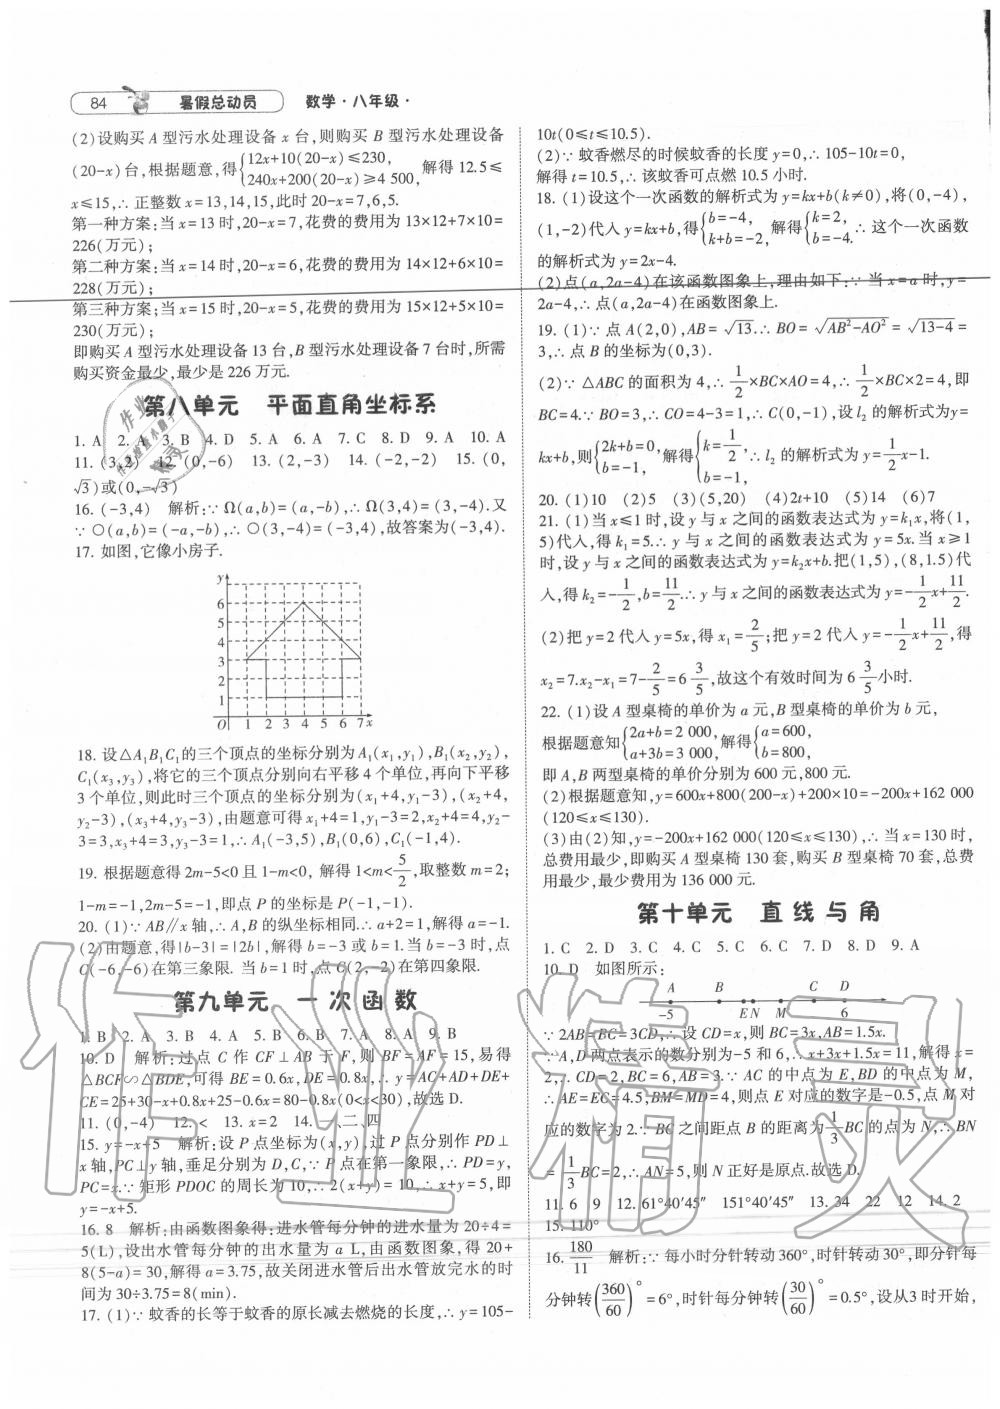 84 暑假总动员 数学·八年级·
(2)设购买 A 型污水处理设备 x 台,则购买 B 型污水处理设备
(20-x)台,根据题意,得{12x+10(20-x)≤230, 240x+200(20-x)≥4 500, 解得 12.5≤
x≤15,∴正整数 x=13,14,15,此时 20-x=7,6,5.
第一种方案:当 x=13 时,20-x=7,花费的费用为 13×12+7×10=
226(万元);
第二种方案:当 x=14 时,20-x=6,花费的费用为 14×12+6×10=
228(万元);
第三种方案:当 x=15 时,20-x=5,花费的费用为 15×12+5×10=
230(万元);
即购买 A 型污水处理设备 13 台,B 型污水处理设备 7 台时,所需
购买资金最少,最少是 226 万元.
第八单元 平面直角坐标系
1. A 2. A 3. B 4. D 5. A 6. A 7. C 8. D 9. A 10. A
11. (3,2) 12. (0,-6) 13. (2,-3) 14. (-2,-2) 15. (0,
√3)或(0,-√3)
16. (-3,4) 解析:∵Ω(a,b)=(a,-b),∴Ω(3,4)=(3,-4).又
∵○(a,b)=(-a,-b),∴○(3,-4)=(-3,4),故答案为(-3,4).
17. 如图,它像小房子.
y
6
5
4
3
2
1
O 1 2 3 4 5 6 7 x
18. 设△A₁B₁C₁的三个顶点的坐标分别为A₁(x₁,y₁),B₁(x₂,y₂),
C₁(x₃,y₃),将它的三个顶点分别向右平移 4 个单位,再向下平移
3 个单位,则此时三个顶点的坐标分别为(x₁+4,y₁-3),(x₂+4,
y₂-3),(x₃+4,y₃-3),由题意可得x₁+4=1,y₁-3=2,x₂+4=4,y₂-
3=3,x₃+4=3,y₃-3=1,∴A₁(-3,5),B₁(0,6),C₁(-1,4).
19. 根据题意得 2m-5<0 且 1-m<0, 解得 1<m<5/2,取整数 m=2;
1-m=-1,2m-5=-1,即点 P 的坐标是 P(-1,-1).
20. (1)∵AB∥x 轴,∴A,B 的纵坐标相同∴a+2=1,解得 a=-1.
(2)由题意,得|b-3|=|2b|,解得 b=-3 或 b=1.当 b=-3 时,点
C(-6,-6)在第三象限. 当 b=1 时,点 C(2,-2)在第四象限.
第九单元 一次函数
1. B 2. A 3. B 4. A 5. B 6. B 7. A 8. A 9. B
10. D 解析:过点 C 作 CF⊥AB 于 F,则 BF=AF=15,易得
△BCF∽△BDE,可得 BE=0.6x,DE=0.8x,∴y=AC+AD+DE+
CE=25+30-x+0.8x+25-0.6x=80-0.8x(0<x<30),故选 D.
11. (0,-4) 12. < 13. x=2 14. 一、二、四
15. y=-x+5 解析:设 P 点坐标为(x,y),过 P 点分别作 PD⊥
x 轴,PC⊥y 轴,垂足分别为 D,C,∵P 点在第一象限,∴PD=y,
PC=x.∵矩形 PDOC 的周长为 10,∴2(x+y)=10,∴x+y=5,即
y=-x+5.
16. 8 解析:由函数图象得:进水管每分钟的进水量为 20÷4=
5(L),设出水管每分钟的出水量为 a L,由函数图象,得 20+
8(5-a)=30,解得 a=3.75,故关闭进水管后出水管放完水的时
间为 30÷3.75=8(min).
17. (1)∵蚊香的长等于蚊香的原长减去燃烧的长度,∴y=105-
10t(0≤t≤10.5).
(2)∵蚊香燃尽的时候蚊香的长度 y=0,∴105-10t=0,
解得 t=10.5,∴该蚊香可点燃 10.5 小时.
18. (1)设这个一次函数的解析式为 y=kx+b(k≠0),将(0,-4),
(1,-2)代入 y=kx+b,得{b=-4, k+b=-2, 解得{k=2, b=-4. ∴这个一次函数
的解析式为 y=2x-4.
(2)点(a,2a-4)在该函数图象上,理由如下:∵当 x=a 时,y=
2a-4,∴点(a,2a-4)在函数图象上.
19. (1)∵点 A(2,0),AB=√13.∴BO=√AB²-AO²=√13-4=
3,∴点 B 的坐标为(0,3).
(2)∵△ABC 的面积为 4,∴1/2×BC×AO=4,∴1/2×BC×2=4,即
BC=4.∵BO=3,∴CO=4-3=1,∴C(0,-1),设 l₂ 的解析式为y=
kx+b,则{2k+b=0, b=-1, 解得{k=1/2, b=-1, ∴l₂ 的解析式为 y=1/2x-1.
20. (1)10 (2)5 (3)(5,20) (4)2t+10 (5)14 (6)7
21. (1)当 x≤1 时,设 y 与 x 之间的函数表达式为 y=k₁x,将(1,
5)代入,得 k₁=5.∴y 与 x 之间的函数表达式为 y=5x.当 x≥1
时,设 y 与 x 之间的函数表达式为 y=k₂x+b.把(1,5),(8,1.5)代
入,得 k₂=-1/2,b=11/2.∴y 与 x 之间的函数表达式为 y=-1/2x+11/2.
(2)把 y=2 代入 y=5x,得 x₁=2/5;把 y=2 代入 y=-1/2x+11/2,得
x₂=7.x₂-x₁=7-2/5=6 3/5,故这个有效时间为 6 3/5小时.
22. (1)设 A 型桌椅的单价为 a 元,B 型桌椅的单价为 b 元,
根据题意知{2a+b=2 000, a+3b=3 000, 解得{a=600, b=800,
即 A,B 两型桌椅的单价分别为 600 元,800 元.
(2)根据题意知,y=600x+800(200-x)+200×10=-200x+162 000
(120≤x≤130).
(3)由(2)知,y=-200x+162 000(120≤x≤130),∴当 x=130 时,
总费用最少,即购买 A 型桌椅 130 套,购买 B 型桌椅 70 套,总费
用最少,最少费用为 136 000 元.
第十单元 直线与角
1. C 2. D 3. C 4. C 5. C 6. C 7. D 8. D 9. A
10. D 如图所示:
A B C D
-5 E N M 6
∵2AB=BC=3CD,∴设 CD=x,则 BC=3x,AB=1.5x.
∵A,D 两点表示的数分别为-5 和 6,∴x+3x+1.5x=11,解得 x=
2,∴CD=2,BC=6,AB=3.∵AC 的中点为 E,BD 的中点为 M,
∴AE=EC=4.5,BM=MD=4,则点 E 对应的数字是-0.5,点 M 对
应的数字为 2.∵BC 之间距点 B 的距离为1/3BC 的点为 N,∴BN
=1/3BC=2,∴AN=5,则 N 正好是原点.故选 D.
11. 6 9 12. 61°40′45″ 151°40′45″ 13. 34 22 12 14. 2
15. 110°
16. 180/11 解析:∵每小时分针转动 360°,时针转动 30°,即分针每
分钟转(360/60)°=6°,时针每分钟转(30/60)°=0.5°,设从3 时开始,
作业精灵